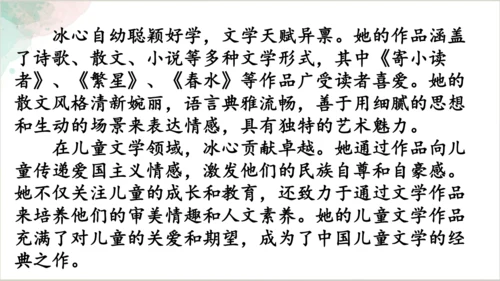 冰心自幼聪颖好学，文学天赋异禀。她的作品涵盖
了诗歌、散文、小说等多种文学形式，其中《寄小读
者》、《繁星》、《春水》等作品广受读者喜爱。她的
散文风格清新婉丽，语言典雅流畅，善于用细腻的思想
和生动的场景来表达情感，具有独特的艺术魅力。
在儿童文学领域，冰心贡献卓越。她通过作品向儿
童传递爱国主义情感，激发他们的民族自尊和自豪感。
她不仅关注儿童的成长和教育，还致力于通过文学作品
来培养他们的审美情趣和人文素养。她的儿童文学作品
充满了对儿童的关爱和期望，成为了中国儿童文学的经
典之作。